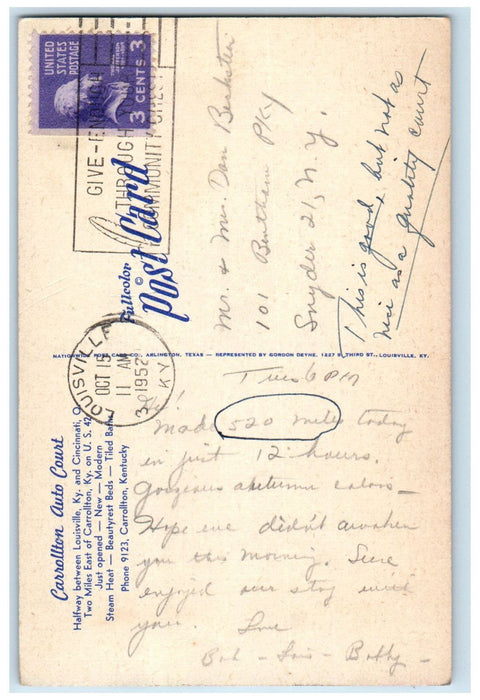 UNITED
STATES
POSTAGE
3 CENTS 3
GIVE-
THROUGH
COMMUNITY CHEST
LOUISVILLE
OCT 15
11 AM
1952
KY
Fullcolor
Post Card
©
Mr. & Mrs. Dan
101 Bentham Pky
Snyder 21, N.Y.
This is good, but not as
nice as a quality court
NATIONWIDE POST CARD CO., ARLINGTON, TEXAS — REPRESENTED BY GORDON DEYHE, 1227 S. THIRD ST., LOUISVILLE, KY.
Carrollton Auto Court
Halfway between Louisville, Ky. and Cincinnati, O.
Two Miles East of Carrollton, Ky. on U. S. 42
Just opened — New — Modern
Steam Heat — Beautyrest Beds — Tiled Baths
Phone 9123, Carrollton, Kentucky
Tues 6 PM
Hi!
Made 520 miles today
in just 12 hours.
Gorgeous autumn colors —
Hope we didn't awaken
you this morning. Sure
enjoyed our stay with
you. Love
Bob - Lois - Bobby -